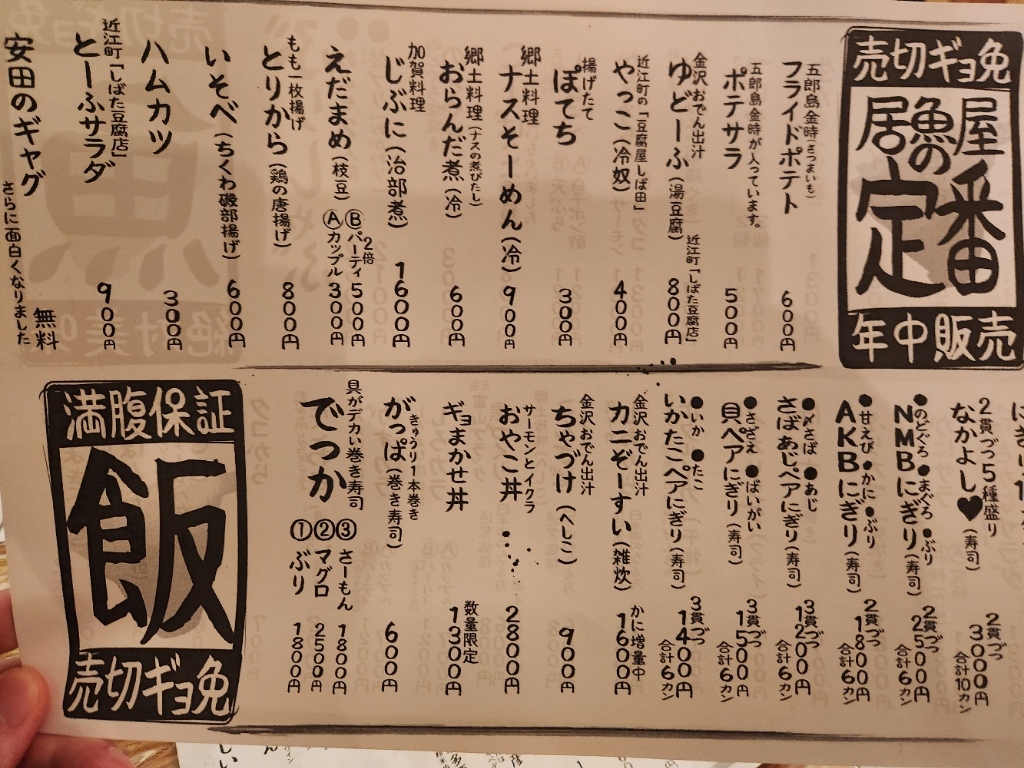 売切ギョ免
魚の
居屋
定番
年中販売
五郎島金時(さつまいも)
フライドポテト
600円
五郎島金時が入っています。
ポテサラ
500円
金沢おでん出汁
ゆどーふ(湯豆腐)
近江町「しばた豆腐店」
800円
近江町の「豆腐屋しば田」
やっこ(冷奴)
400円
揚げたて
ぽてち
300円
郷土料理
ナスそーめん(冷)
900円
郷土料理(ナスの煮びたし)
おらんだ煮(冷)
600円
加賀料理
じぶに(治部煮)
1600円
えだまめ(枝豆)
2倍
Ⓑパーティ500円
Ⓐカップル300円
もも一枚揚げ
とりから(鶏の唐揚げ)
800円
いそべ(ちくわ磯部揚げ)
600円
ハムカツ
300円
近江町「しばた豆腐店」
とーふサラダ
900円
安田のギャグ
さらに面白くなりました
無料
2貫づつ5種盛り
なかよし♥(寿司)
2貫づつ
3000円
合計10カン
●のどぐろ●まぐろ●ぶり
NMBにぎり(寿司)
2貫づつ
2500円
合計6カン
●甘えび●かに●ぶり
AKBにぎり(寿司)
2貫づつ
1800円
合計6カン
●〆さば●あじ
さばあじペアにぎり(寿司)
3貫づつ
1200円
合計6カン
●さざえ●ばいがい
貝ペアにぎり(寿司)
3貫づつ
1500円
合計6カン
●いか●たこ
いかたこペアにぎり(寿司)
3貫づつ
1400円
合計6カン
金沢おでん出汁
カニぞーすい(雑炊)
かに増量中
1600円
金沢おでん出汁
ちゃづけ(へしこ)
900円
サーモンとイクラ
おやこ丼
2800円
ギョまかせ丼
数量限定
1300円
きゅうり1本巻き
がっぱ(巻き寿司)
600円
具がデカい巻き寿司
でっか
③さーもん
1800円
②マグロ
2500円
①ぶり
1800円
満腹保証
飯
売切ギョ免